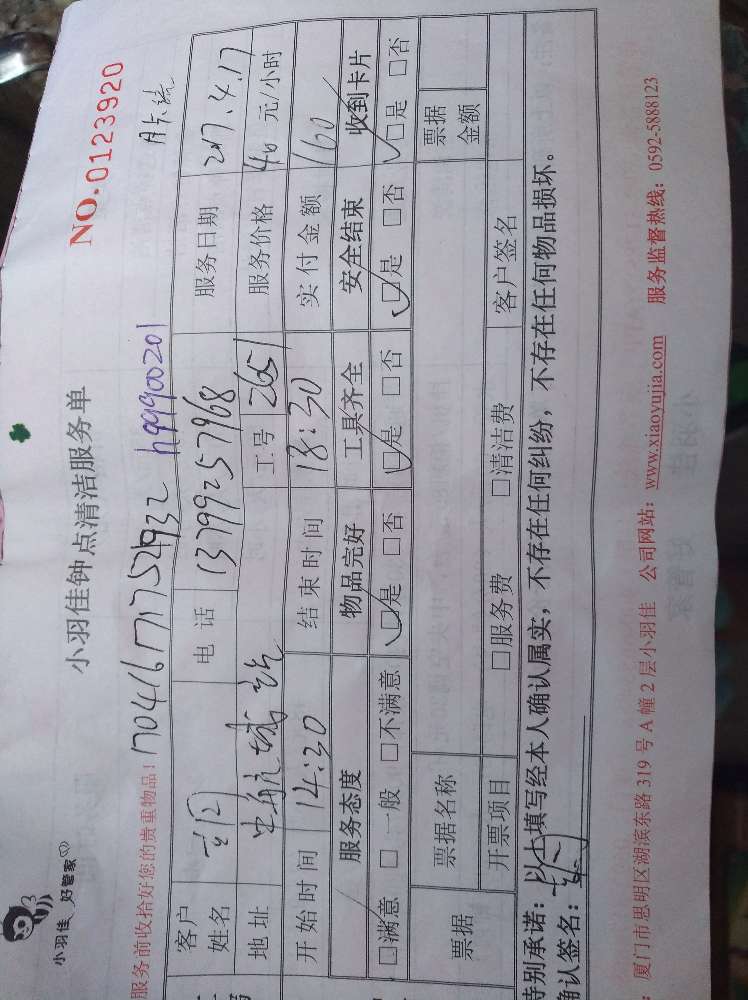 小羽佳 好管家
小羽佳钟点清洁服务单
NO.0123920
服务前收拾好您的贵重物品!
170416717152932 h999900201
月卡
客户姓名 电话 13799257968 服务日期 2017.4.17
地址 中航城 工号 2651 服务价格 40 元/小时
开始时间 14:30 结束时间 18:30 实付金额 160
服务态度 物品完好 工具齐全 安全结束 收到卡片
□满意 □一般 □不满意 □是 □否 □是 □否 □是 □否 □是 □否
票据 票据名称 票据金额
开票项目 □服务费 □清洁费 客户签名
特别承诺:以上填写经本人确认属实,不存在任何纠纷,不存在任何物品损坏。
确认签名:
厦门市思明区湖滨东路 319 号 A 幢 2 层小羽佳 公司网站:www.xiaoyujia.com 服务监督热线:0592-5888123